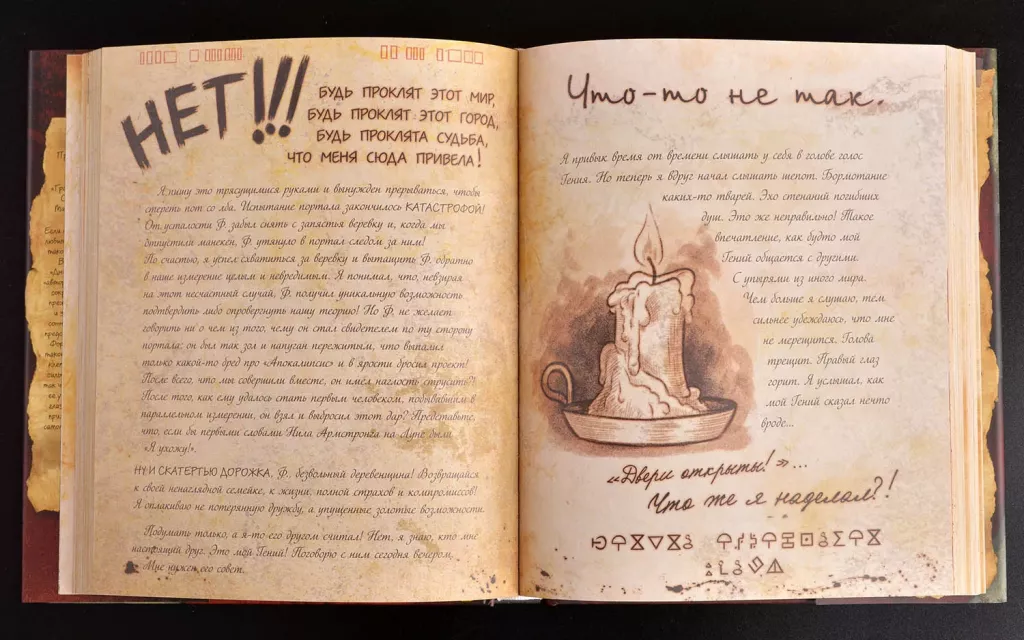 НЕТ!!!
БУДЬ ПРОКЛЯТ ЭТОТ МИР,
БУДЬ ПРОКЛЯТ ЭТОТ ГОРОД,
БУДЬ ПРОКЛЯТА СУДЬБА,
ЧТО МЕНЯ СЮДА ПРИВЕЛА!
Я пишу это трясущимися руками и вынужден прерываться, чтобы
стереть пот со лба. Испытание портала закончилось КАТАСТРОФОЙ!
От усталости Ф. забыл снять с запястья веревку и, когда мы
отпустили манекен, Ф. утянуло в портал следом за ним!
По счастью, я успел схватиться за веревку и вытащить Ф. обратно
в наше измерение целым и невредимым. Я понимал, что, невзирая
на этот несчастный случай, Ф. получил уникальную возможность
подтвердить либо опровергнуть нашу теорию! Но Ф. не желает
говорить ни о чем из того, чему он стал свидетелем по ту сторону
портала: он был так зол и напуган пережитым, что выпалил
только какой-то бред про «Апокалипсис» и в ярости бросил проект!
После всего, что мы совершили вместе, он имел наглость струсить?!
После того, как ему удалось стать первым человеком, побывавшим в
параллельном измерении, он взял и выбросил этот дар? Представьте,
что, если бы первыми словами Нила Армстронга на Луне были
«Я ухожу!».
НУ И СКАТЕРТЬЮ ДОРОЖКА, Ф., безвольный деревенщина! Возвращайся
к своей ненаглядной семейке, к жизни, полной страхов и компромиссов!
Я оплакиваю не потерянную дружбу, а упущенные золотые возможности.
Подумать только, а я-то его другом считал! Нет, я знаю, кто мне
настоящий друг. Это мой Гений! Поговорю с ним сегодня вечером.
Мне нужен его совет.
Что-то не так.
Я привык время от времени слышать у себя в голове голос
Гения. Но теперь я вдруг начал слышать шепот. Бормотание
каких-то тварей. Эхо стенаний погибших
душ. Это же неправильно! Такое
впечатление, как будто мой
Гений общается с другими.
С упырями из иного мира.
Чем больше я слушаю, тем
сильнее убеждаюсь, что мне
не мерещится. Голова
трещит. Правый глаз
горит. Я услышал, как
мой Гений сказал нечто
вроде...
«Двери открыты!»...
Что же я наделал?!